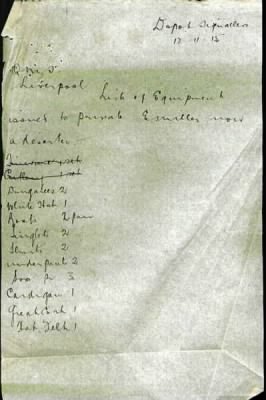 Depot Signallers
17-11-15
Liverpool
List of Equipment
issued to Private E Smiles now
a deserter
Dungarees 2
White Hat 1
Boots 2 pair
Singlets 2
Shirts 2
underpants 2
Sox pr 3
Cardigan 1
Great Coat 1
Hat Felt 1